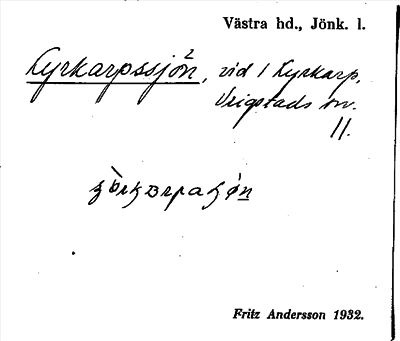 Västra hd., Jönk. l.
Kyrkarpssjön, vid 1 Kyrkarp,
Vrigstads sn.
11.
Fritz Andersson 1932.